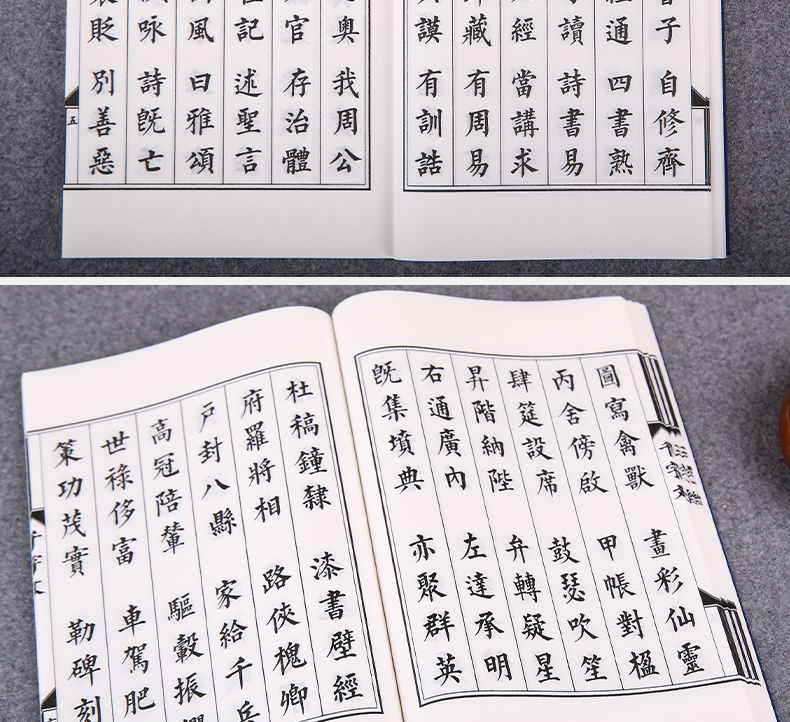 子 自修齊
通 四書熟
讀 詩書易
經 當講求
藏 有周易
謨 有訓誥
奧 我周公
官 存治體
記 述聖言
風 曰雅頌
咏 詩旣亡
貶 別善惡
五
千字文
圖寫禽獸 畫彩仙靈
丙舍傍啟 甲帳對楹
肆筵設席 鼓瑟吹笙
昇階納陛 弁轉疑星
右通廣內 左達承明
旣集墳典 亦聚群英
杜稿鐘隸 漆書壁經
府羅將相 路俠槐卿
戶封八縣 家給千兵
高冠陪輦 驅轂振
世祿侈富 車駕肥
策功茂實 勒碑刻